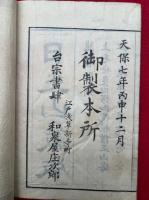 天保七年丙申十二月
御製本所
江戸浅草新寺町
台宗書肆
和泉屋庄次郎